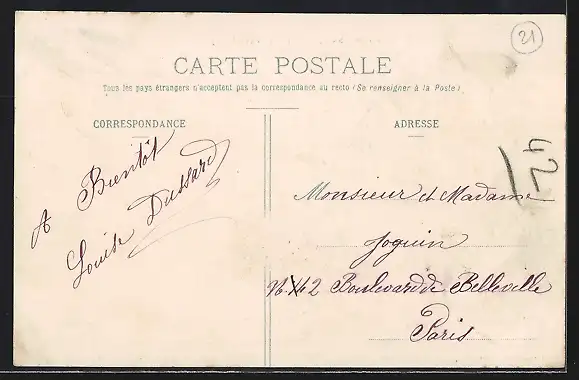 21
CARTE POSTALE
Tous les pays étrangers n'acceptent pas la correspondance au recto (Se renseigner à la Poste)
CORRESPONDANCE
A Bientôt
Louise Dussard
ADRESSE
42
Monsieur et Madame
Joguin
42 Boulevard de Belleville
Paris